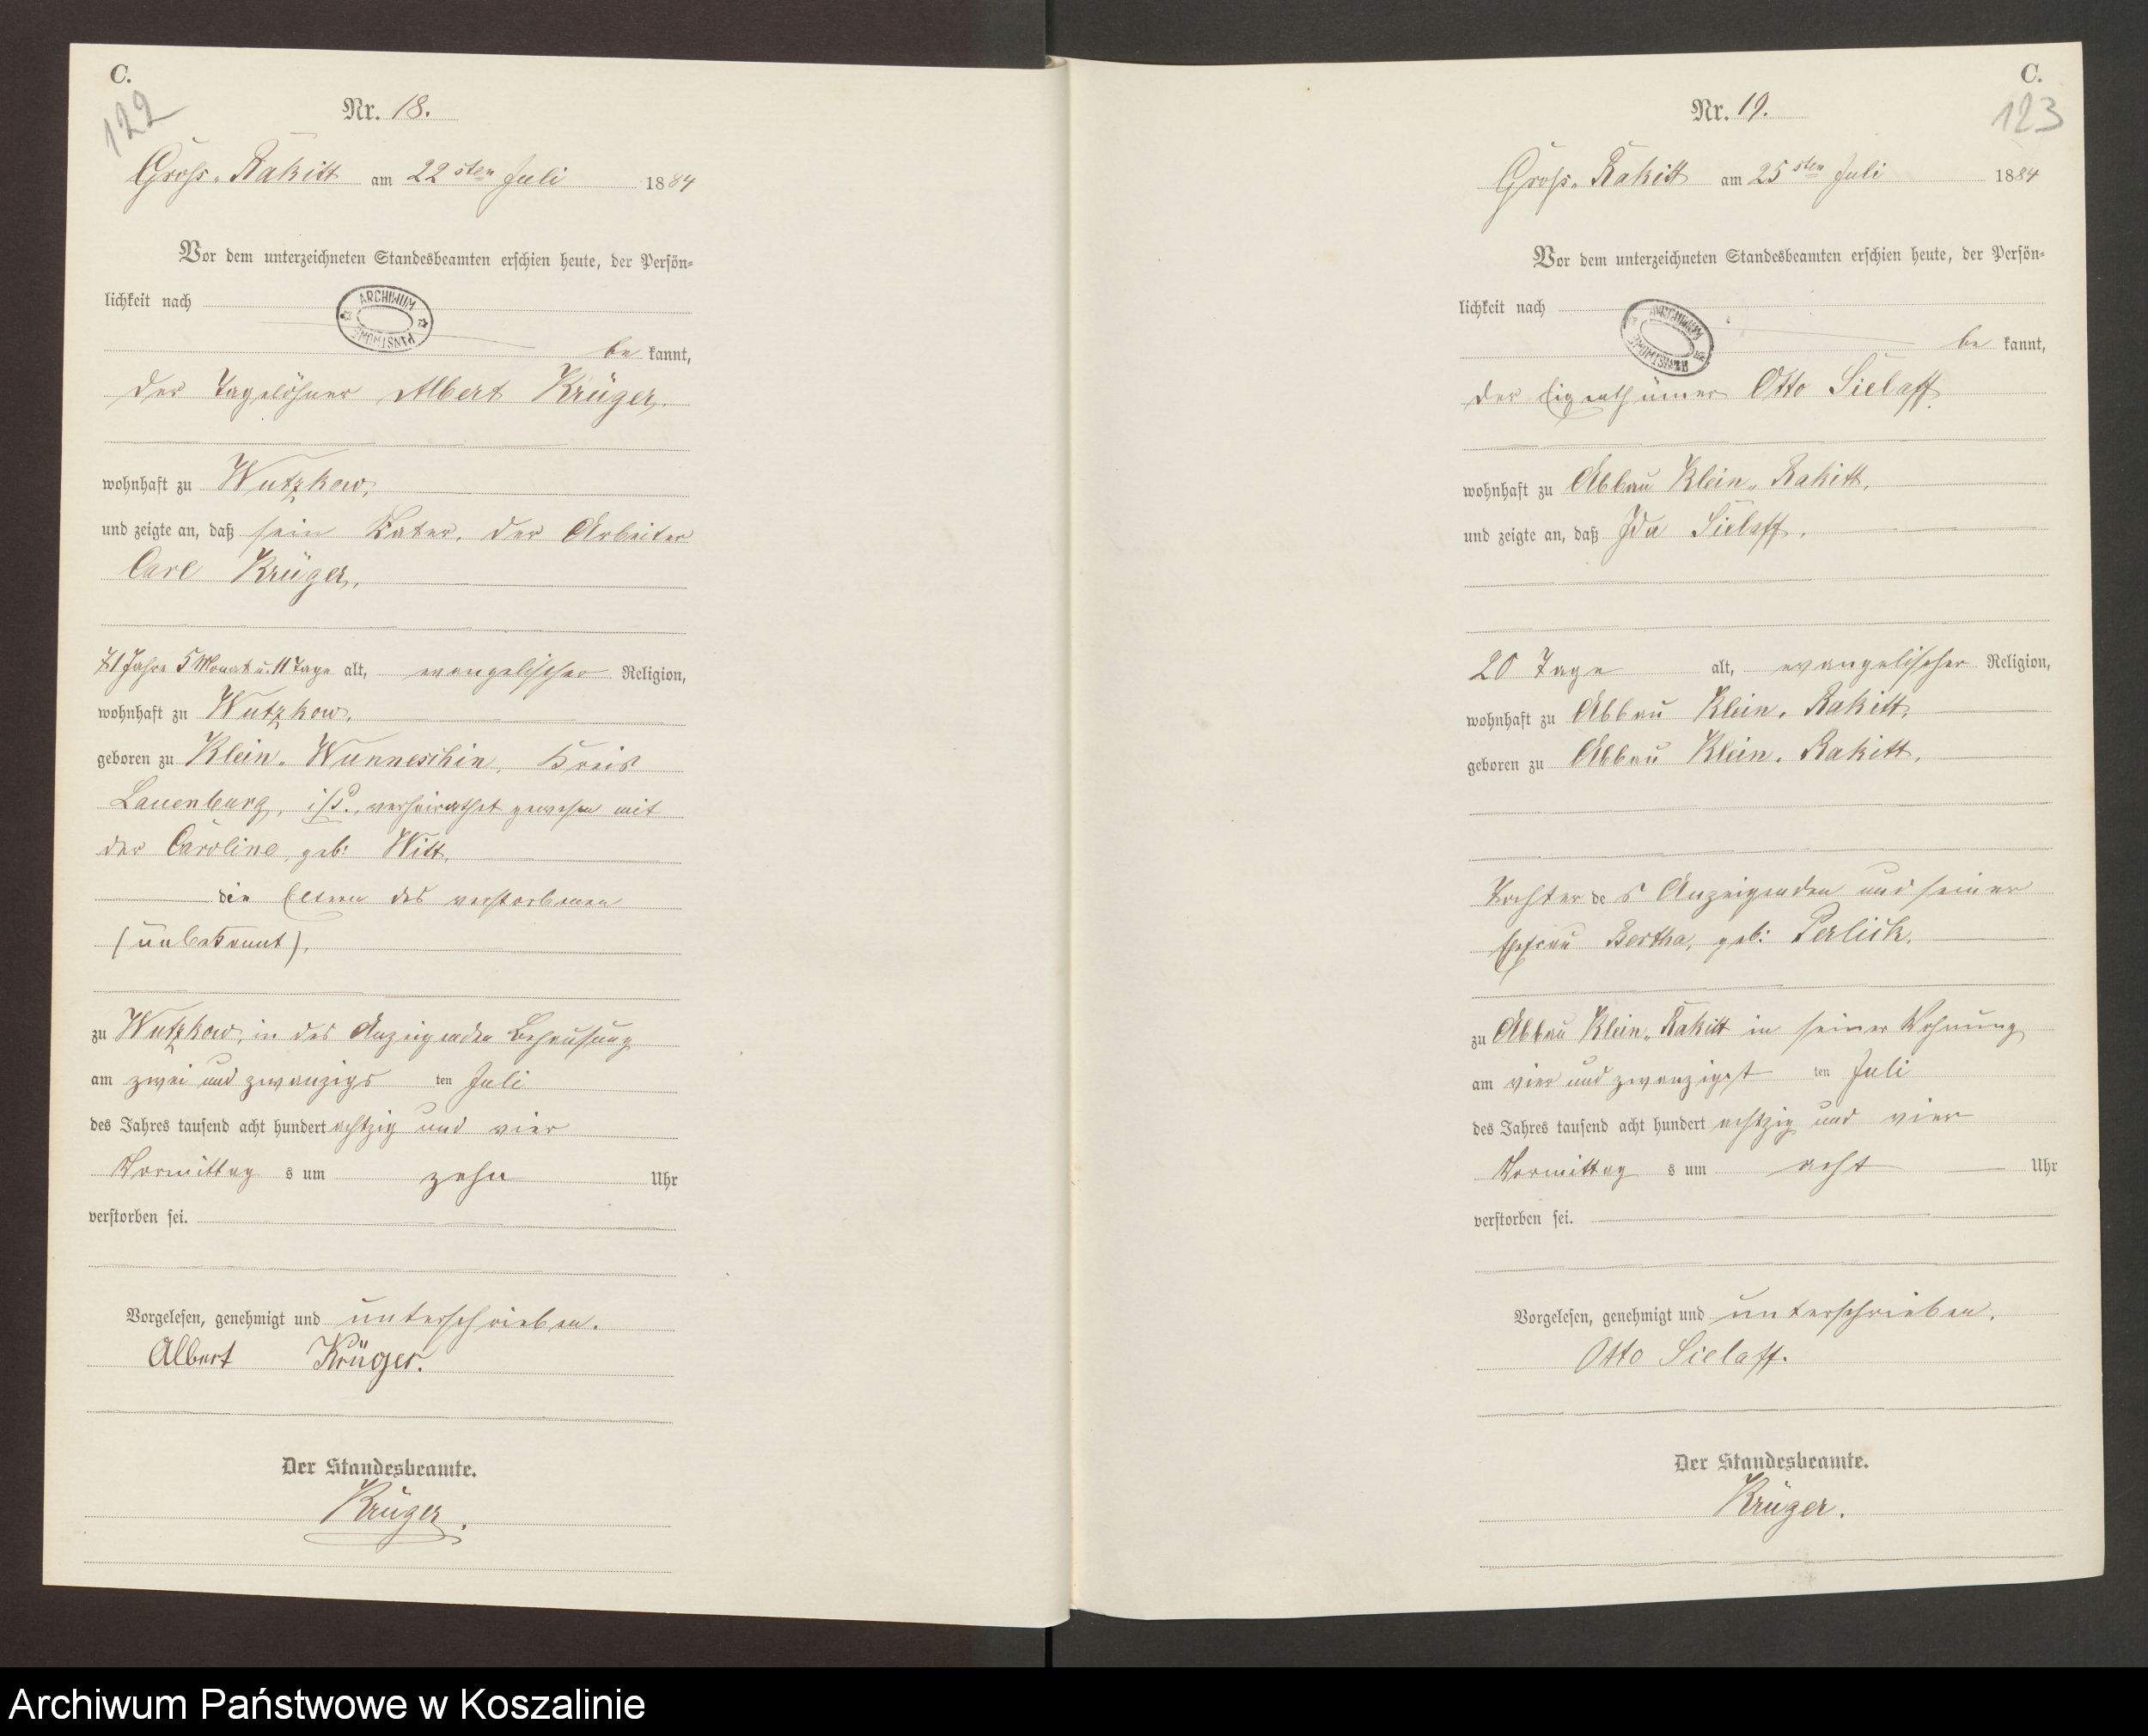 C.
122
Nr. 18.
Gross-Rakitt am 22sten Juli 1884
Vor dem unterzeichneten Standesbeamten erschien heute, der Persön-
lichkeit nach
ARCHIWUM PAŃSTWOWE
be kannt,
der Tagelöhner Albert Krüger,
wohnhaft zu Wutzkow,
und zeigte an, daß sein Vater, der Arbeiter
Carl Krüger,
71 Jahre 5 Monat u. 11 Tage alt, evangelischer Religion,
wohnhaft zu Wutzkow,
geboren zu Klein-Wunneschin, Kreis
Lauenburg, i/P., verheirathet gewesen mit
der Caroline, geb: Witt,
die Eltern des verstorbenen
(unbekannt),
zu Wutzkow, in des Anzeigenden Behausung
am zwei und zwanzigs ten Juli
des Jahres tausend acht hundert achtzig und vier
Vormittag s um zehn Uhr
verstorben sei.
Vorgelesen, genehmigt und unterschrieben.
Albert Krüger.
Der Standesbeamte.
Krüger.
C.
123
Nr. 19.
Gross-Rakitt am 25sten Juli 1884
Vor dem unterzeichneten Standesbeamten erschien heute, der Persön-
lichkeit nach
ARCHIWUM PAŃSTWOWE
be kannt,
der Eigenthümer Otto Sielaff
wohnhaft zu Abbau Klein-Rakitt,
und zeigte an, daß Ida Sielaff,
20 Tage alt, evangelischer Religion,
wohnhaft zu Abbau Klein-Rakitt,
geboren zu Abbau Klein-Rakitt,
Tochter de s Anzeigenden und seiner
Ehefrau Bertha, geb: Perlick,
zu Abbau Klein-Rakitt in seiner Wohnung
am vier und zwanzigst ten Juli
des Jahres tausend acht hundert achtzig und vier
Vormittag s um acht Uhr
verstorben sei.
Vorgelesen, genehmigt und unterschrieben.
Otto Sielaff.
Der Standesbeamte.
Krüger.
Archiwum Państwowe w Koszalinie